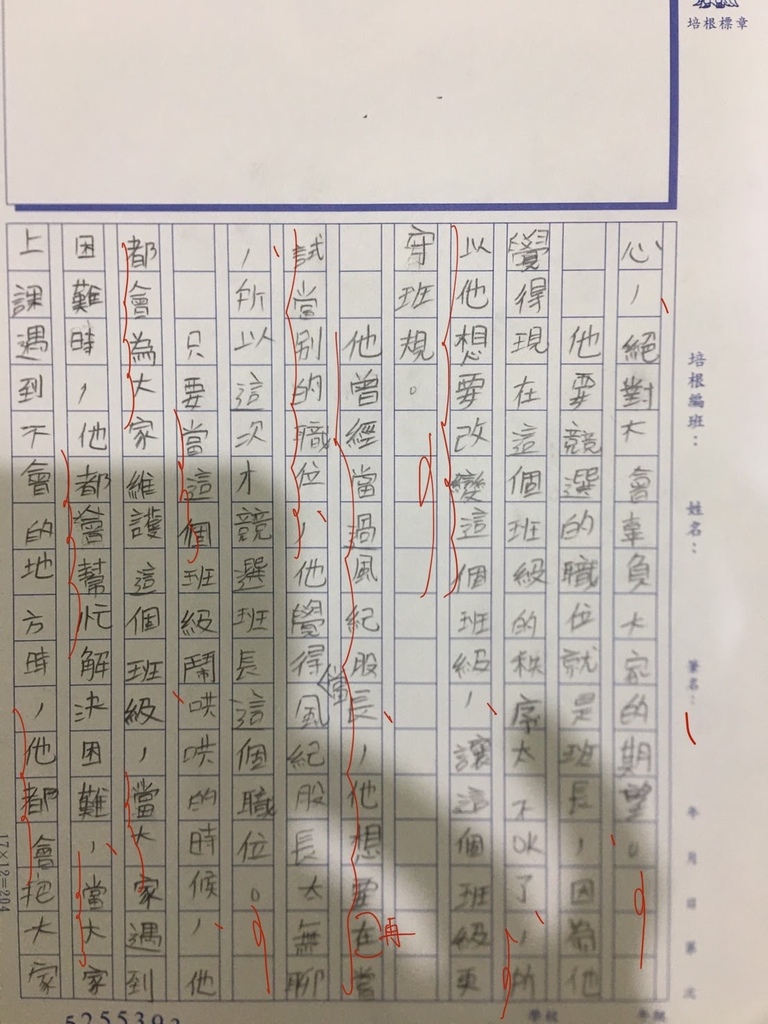 培根標章
培根編班： 姓名： 筆名： 年 月 日 第 次
心，絕對不會辜負大家的期望。
他要競選的職位就是班長，因為他
覺得現在這個班級的秩序太不OK了，所
以他想要改變這個班級，讓這個班級更
守班規。
他曾經當過風紀股長，他想要在當
再
試當別的職位，他覺得當風紀股長太無聊
，所以這次才競選班長這個職位。
只要當這個班級鬧哄哄的時候，他
都會為大家維護這個班級，當大家遇到
困難時，他都會幫忙解決困難，當大家
上課遇到不會的地方時，他都會把大家
17×12=204